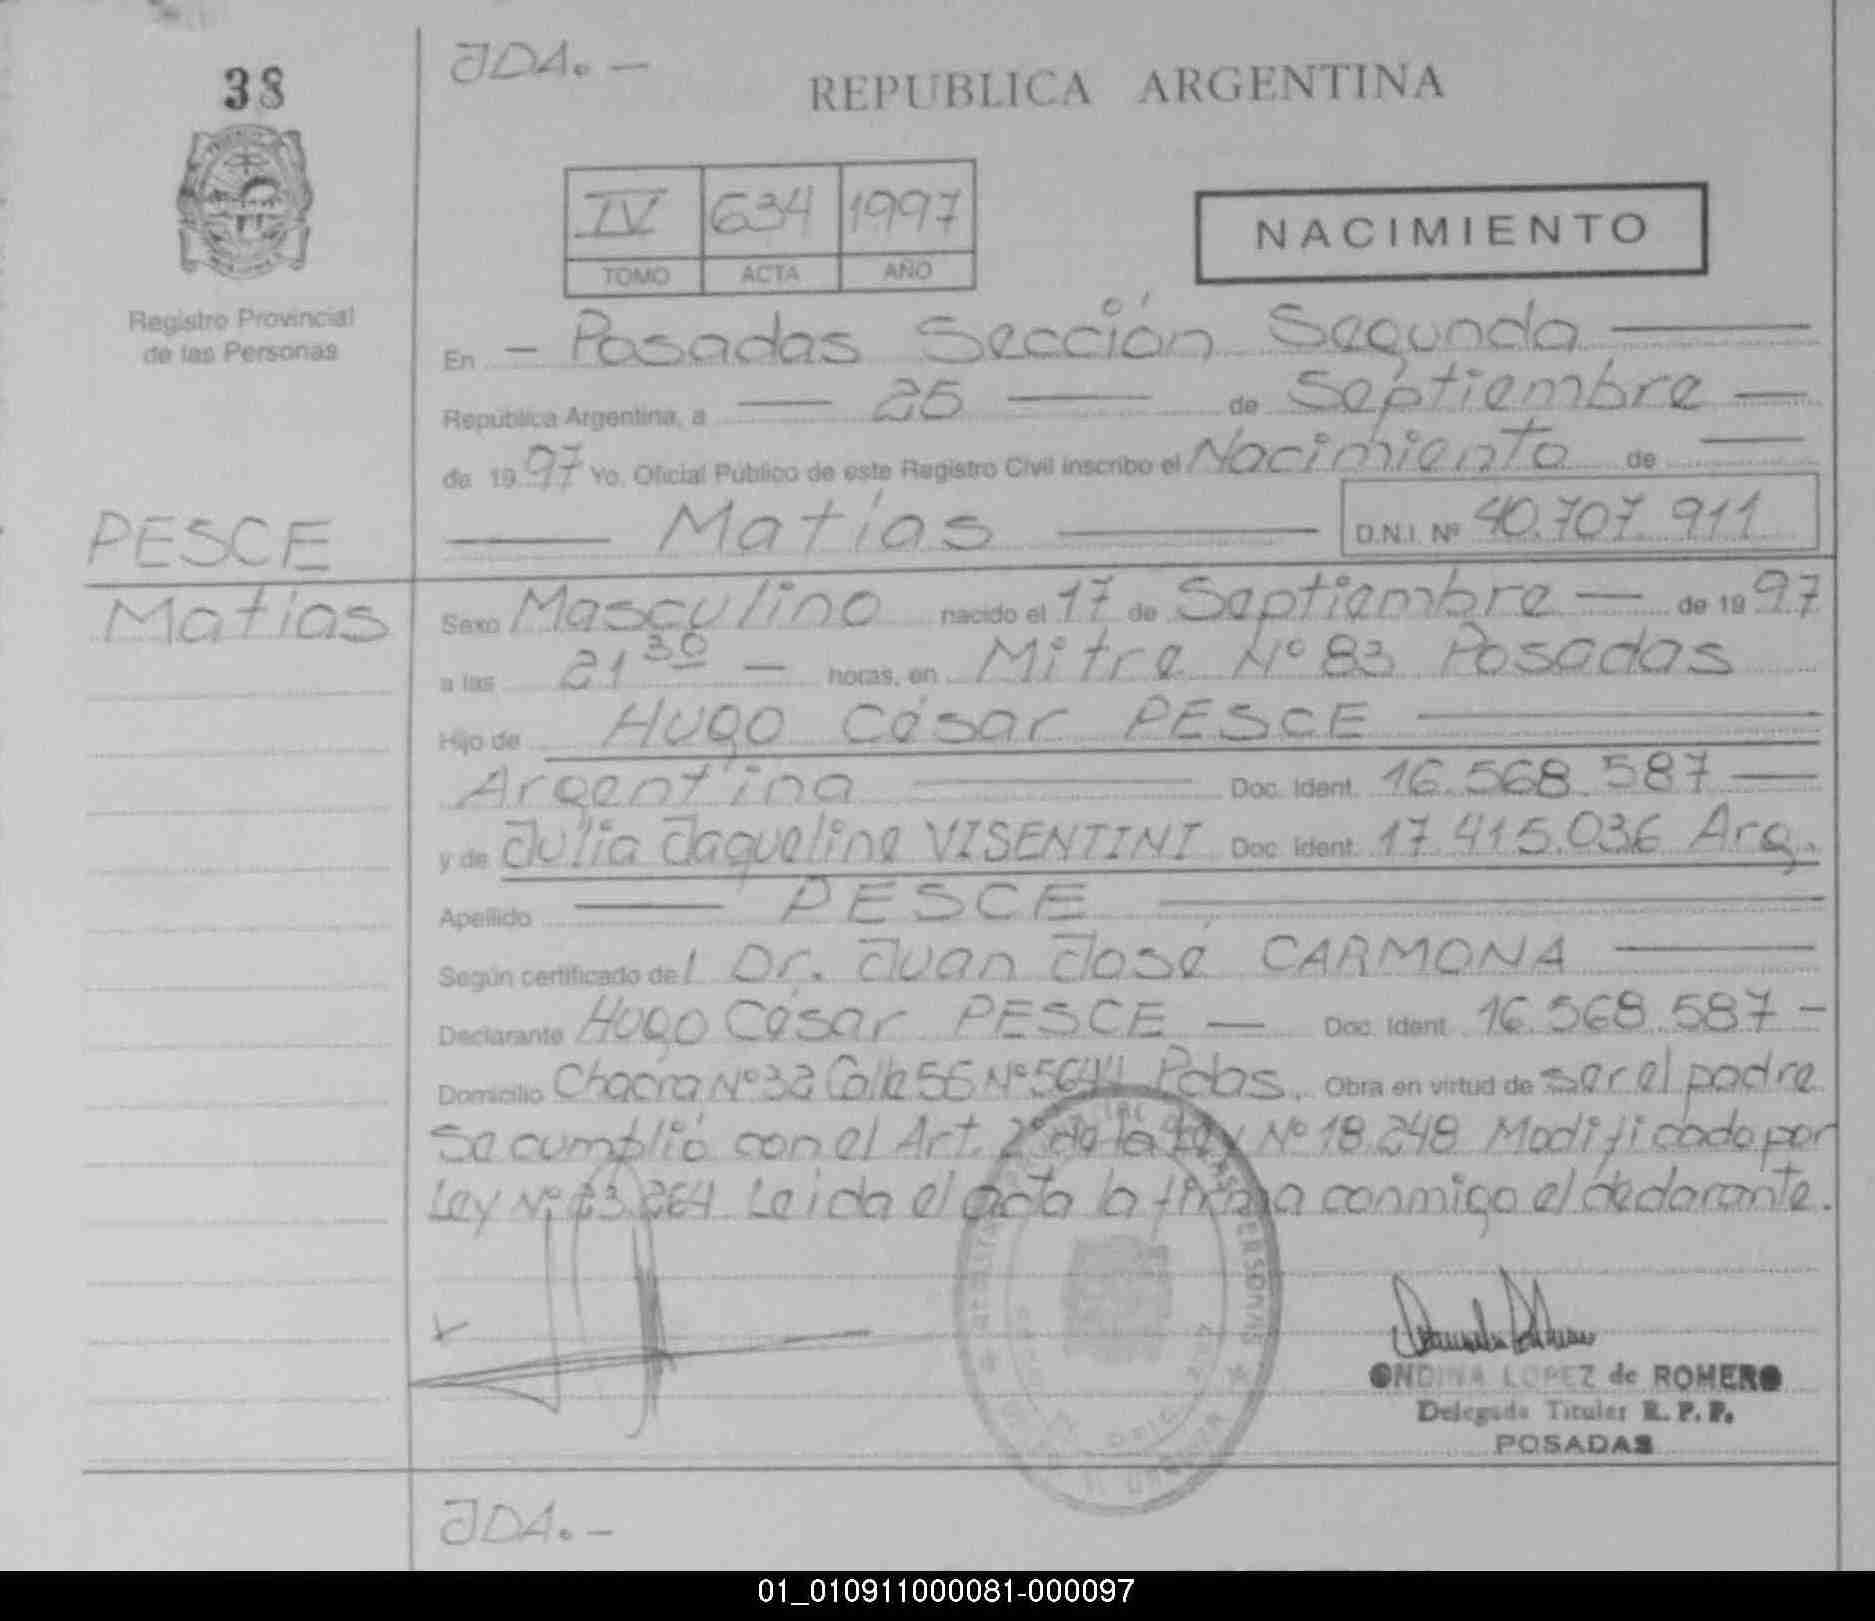 38
JDA. —
REPUBLICA ARGENTINA
IV 634 1997
TOMO ACTA AÑO
NACIMIENTO
Registro Provincial
de las Personas
En — Posadas Sección Segunda —
República Argentina, a — 25 — de Septiembre —
de 1997 Yo, Oficial Público de este Registro Civil inscribo el Nacimiento de —
— Matías — D.N.I. Nº 40.707.911
PESCE
Matías
Sexo Masculino nacido el 17 de Septiembre — de 1997
a las 21 30 — horas, en Mitre Nº 83 Posadas
Hijo de Hugo César PESCE —
Argentina — Doc. Ident. 16.568.587 —
y de Julia Jaqueline VISENTINI Doc. Ident. 17.415.036 Arg.
Apellido — PESCE —
Según certificado del Dr. Juan José CARMONA —
Declarante Hugo César PESCE — Doc. Ident. 16.568.587 —
Domicilio Chacra Nº 32 Calle 56 Nº 5644 Pdas. Obra en virtud de ser el padre
Se cumplió con el Art. 2º de la Ley Nº 18.248 Modificado por
Ley Nº 23.264 Leida el acta la firma conmigo el declarante.
PERSONAS
ONDINA LOPEZ de ROMERO
Delegada Titular R. P. P.
POSADAS
JDA. —
01_010911000081-000097